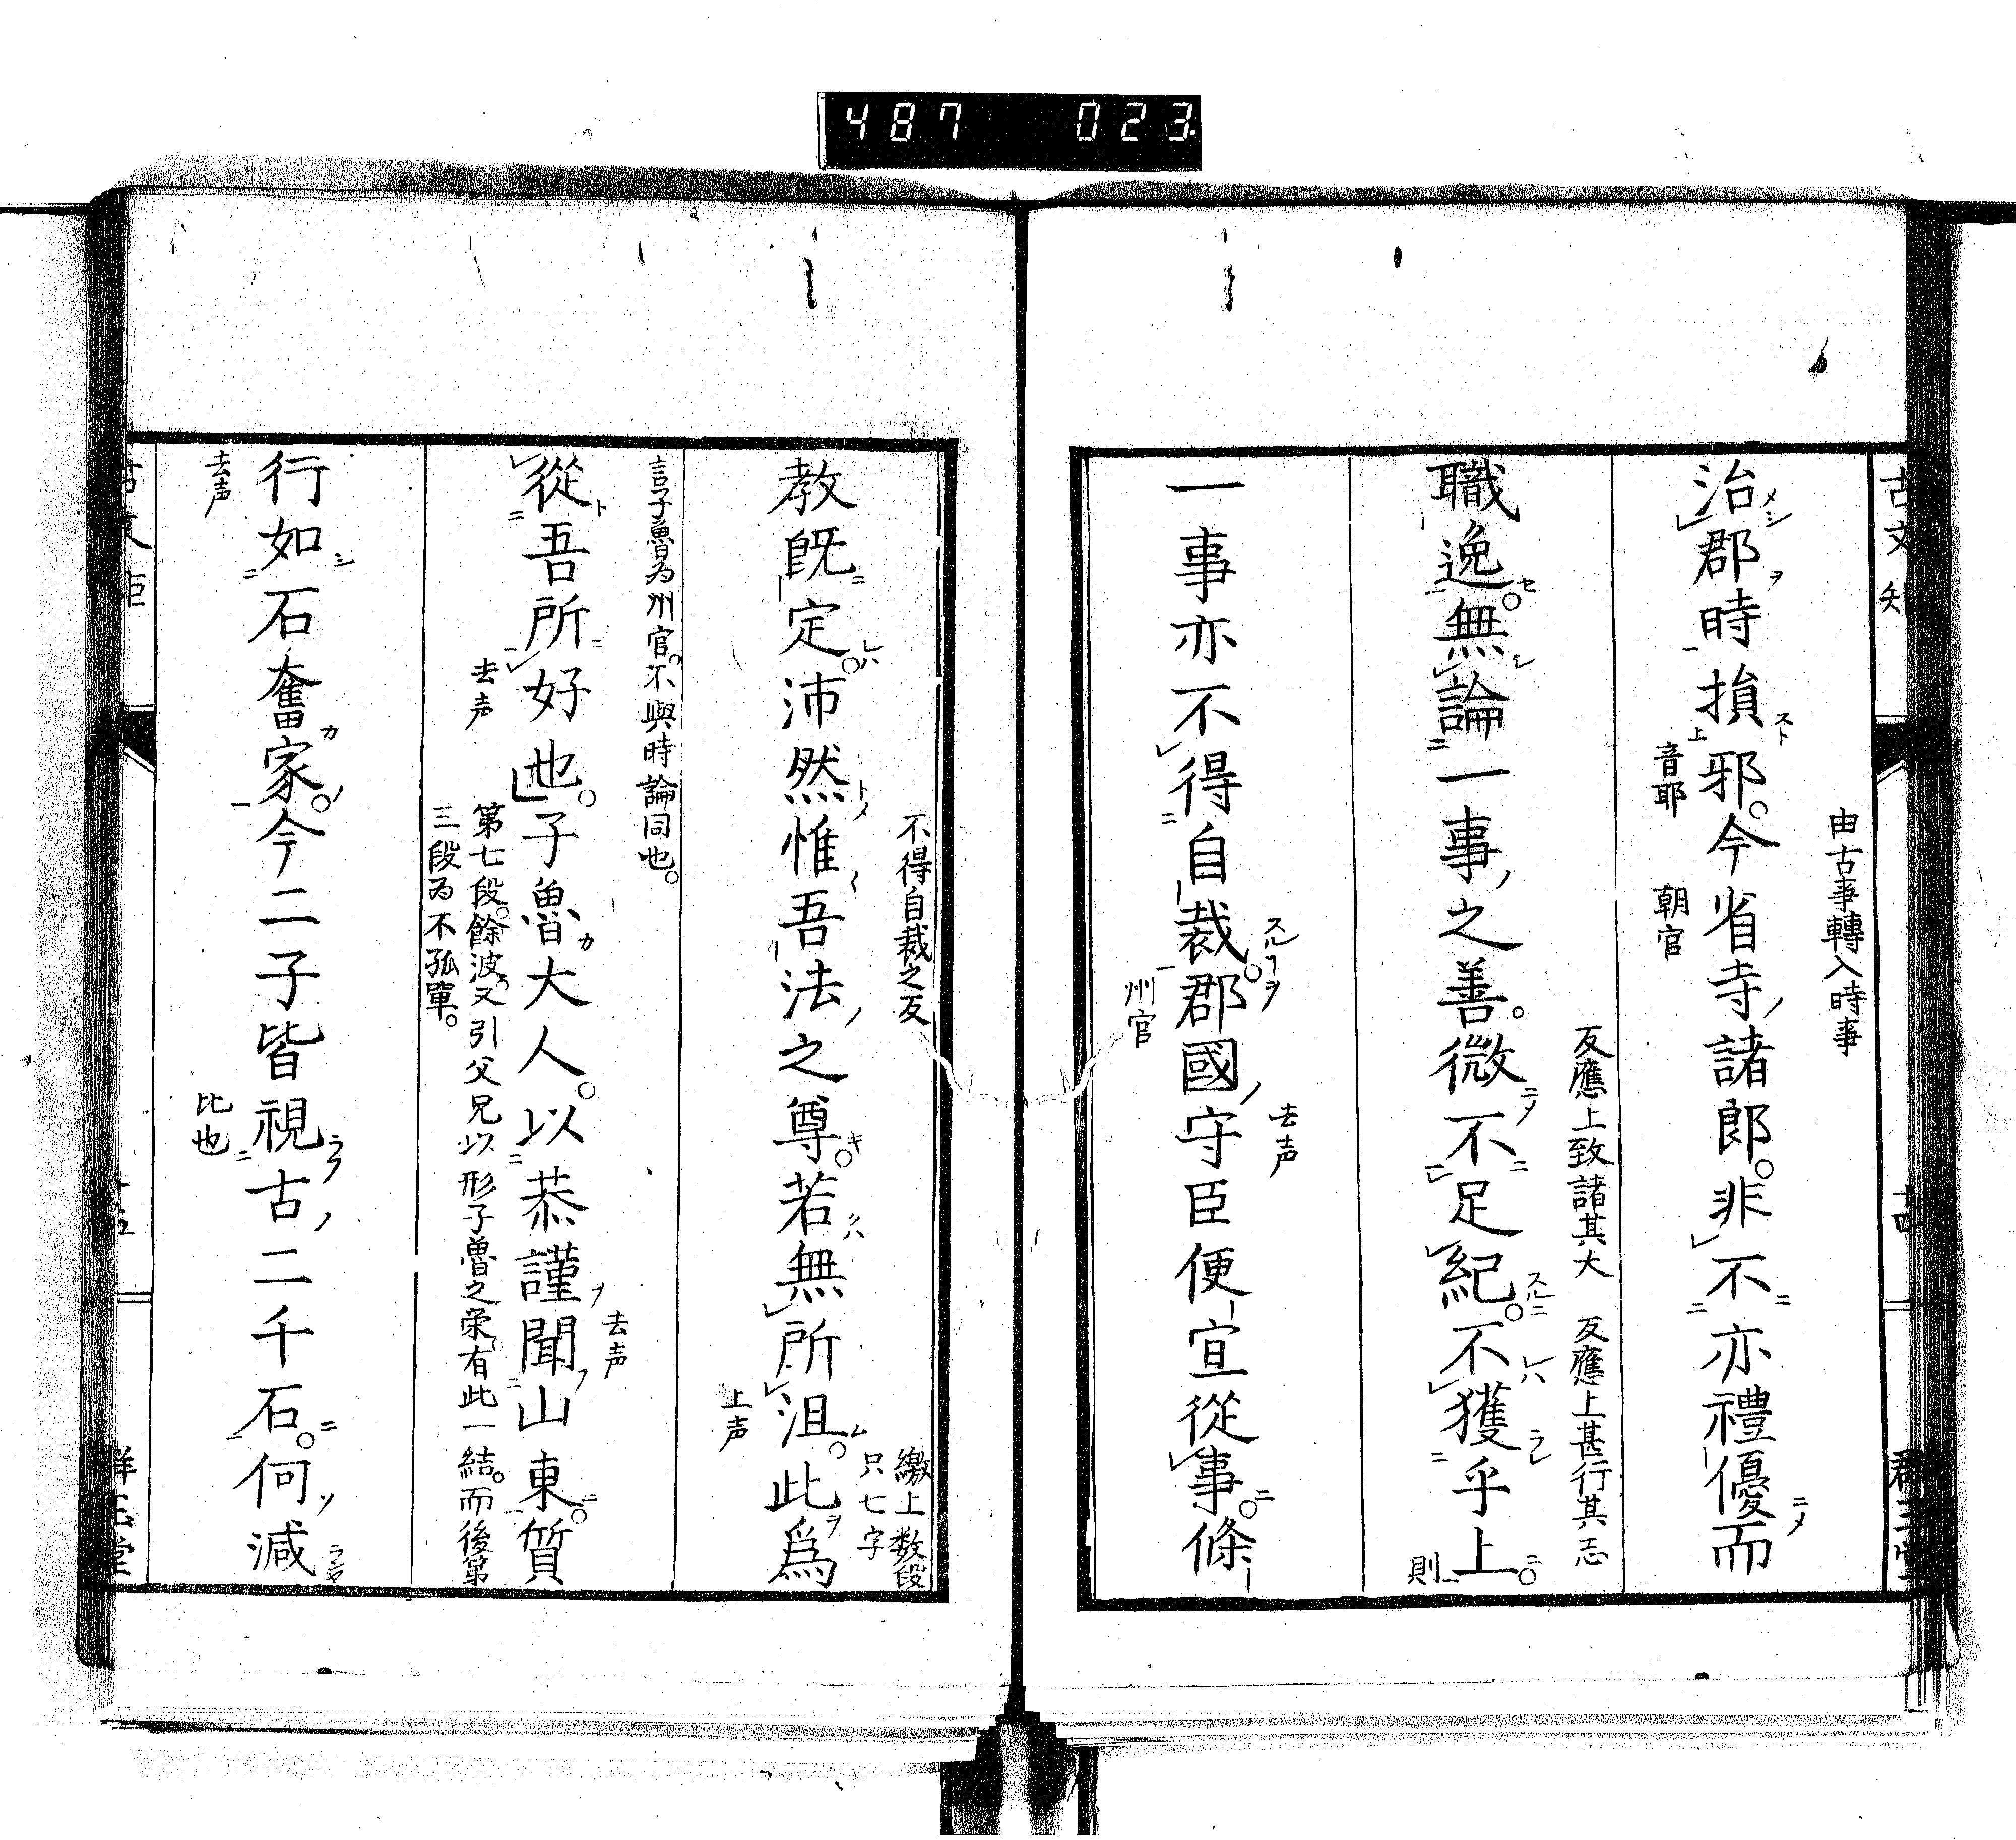 487 023
由古事轉入時事
治郡時損邪。今省寺諸郎。非不亦禮優而
音耶
朝官
反應上致諸其大
反應上甚行其志
職逸。無論一事之善。微不足紀。不獲乎上
則
一事亦不得自裁。郡國守臣便宣從事。條
去声
州官
不得自裁之反
繳上数段
只七字
教既定。沛然惟吾法之尊。若無所沮。此爲
上声
言子魯为州官。不與時論同也。
從吾所好也。子魯大人。以恭謹聞山東。質
去声
去声
第七段。餘波。又引父兄以形子魯之栄。有此一結。而後第
三段为不孤單。
行如石奮家。今二子皆視古二千石。何減
去声
比也